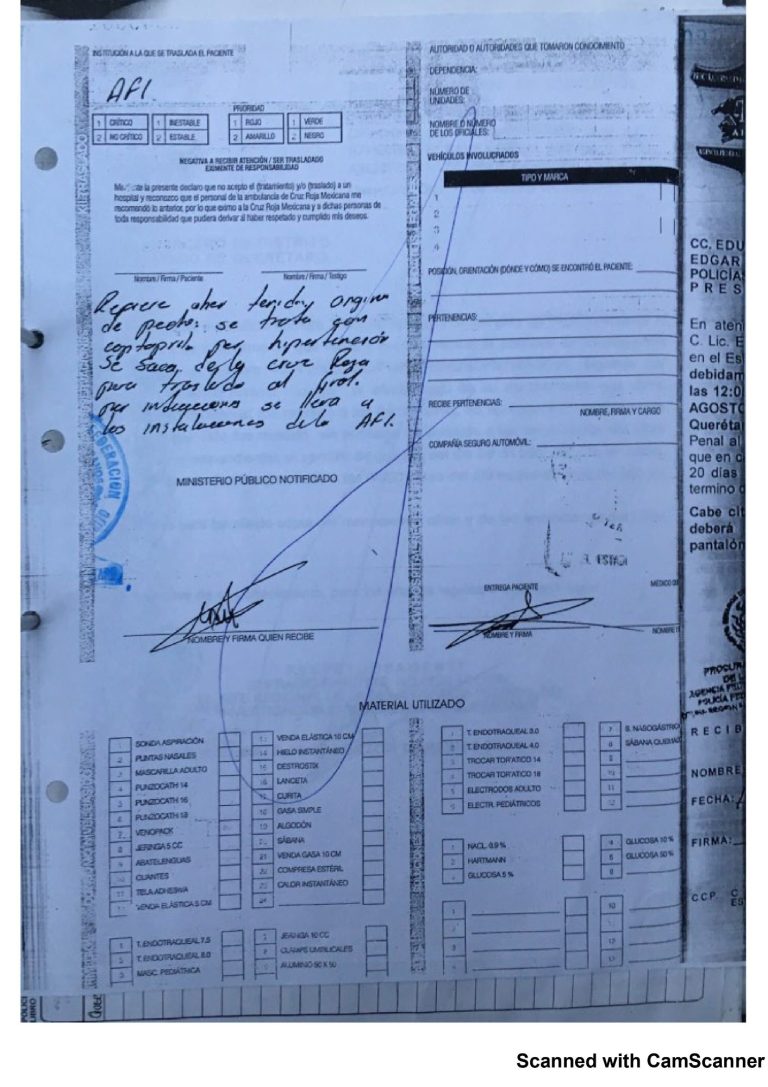 INSTITUCIÓN A LA QUE SE TRASLADA EL PACIENTE
AFI.
PRIORIDAD
1 CRÍTICO 1 INESTABLE 1 ROJO 1 VERDE
2 NO CRÍTICO 2 ESTABLE 2 AMARILLO 2 NEGRO
NEGATIVA A RECIBIR ATENCIÓN / SER TRASLADADO
EXIMENTE DE RESPONSABILIDAD
la presente declaro que no acepto el (tratamiento) y/o (traslado) a un
hospital y reconozco que el personal de la ambulancia de Cruz Roja Mexicana me
recomendó lo anterior, por lo que eximo a la Cruz Roja Mexicana y a dichas personas de
toda responsabilidad que pudiera derivar al haber respetado y cumplido mis deseos.
Nombre / Firma / Paciente Nombre / Firma / Testigo
Refiere aber tenido angina
de pecho: se trata con
captopril por hipertención
Se saca de la cruz Roja
para traslado al Gral.
por indicaciones se lleva a
las instalaciones de la AFI.
MINISTERIO PÚBLICO NOTIFICADO
NOMBRE Y FIRMA QUIEN RECIBE
AUTORIDAD O AUTORIDADES QUE TOMARON CONOCIMIENTO
DEPENDENCIA:
NÚMERO DE
UNIDADES:
NOMBRE O NÚMERO
DE LOS OFICIALES:
VEHÍCULOS INVOLUCRADOS
TIPO Y MARCA
1
2
3
4
POSICIÓN, ORIENTACIÓN (DÓNDE Y CÓMO) SE ENCONTRÓ EL PACIENTE:
PERTENENCIAS:
RECIBE PERTENENCIAS:
NOMBRE, FIRMA Y CARGO
COMPAÑÍA SEGURO AUTOMÓVIL:
ENTREGA PACIENTE
MÉDICO
NOMBRE Y FIRMA
NOMBRE
MATERIAL UTILIZADO
1 SONDA ASPIRACIÓN
2 PUNTAS NASALES
3 MASCARILLA ADULTO
4 PUNZOCATH 14
5 PUNZOCATH 16
6 PUNZOCATH 18
7 VENOPACK
8 JERINGA 5 CC
9 ABATELENGUAS
10 GUANTES
11 TELA ADHESIVA
12 VENDA ELÁSTICA 5 CM
13 VENDA ELÁSTICA 10 CM
14 HIELO INSTANTÁNEO
15 DESTROSTIX
16 LANCETA
17 CURITA
18 GASA SIMPLE
19 ALGODÓN
20 SÁBANA
21 VENDA GASA 10 CM
22 COMPRESA ESTÉRIL
23 CALOR INSTANTÁNEO
24
1 T. ENDOTRAQUEAL 7.5
2 T. ENDOTRAQUEAL 8.0
3 MASC. PEDIÁTRICA
JERINGA 10 CC
CLAMPS UMBILICALES
ALUMINIO 50 X 50
1 T. ENDOTRAQUEAL 3.0
2 T. ENDOTRAQUEAL 4.0
3 TROCAR TORÁTICO 14
4 TROCAR TORÁTICO 18
5 ELECTRODOS ADULTO
6 ELECTR. PEDIÁTRICOS
7 S. NASOGÁSTRIC
8 SÁBANA QUEMAD
9
10
11
12
1 NACL. 0.9 %
2 HARTMANN
3 GLUCOSA 5 %
4 GLUCOSA 10 %
5 GLUCOSA 50 %
6
FEDERACION
CC. EDU
EDGAR
POLICÍA
PRES
En aten
C. Lic. E
en el Es
debidam
las 12:0
AGOSTO
Queréta
Penal al
que en c
20 días
termino d
Cabe cit
deberá
pantalón
RECIB
NOMBRE
FECHA:
FIRMA:
CCP. C
ES
Scanned with CamScanner